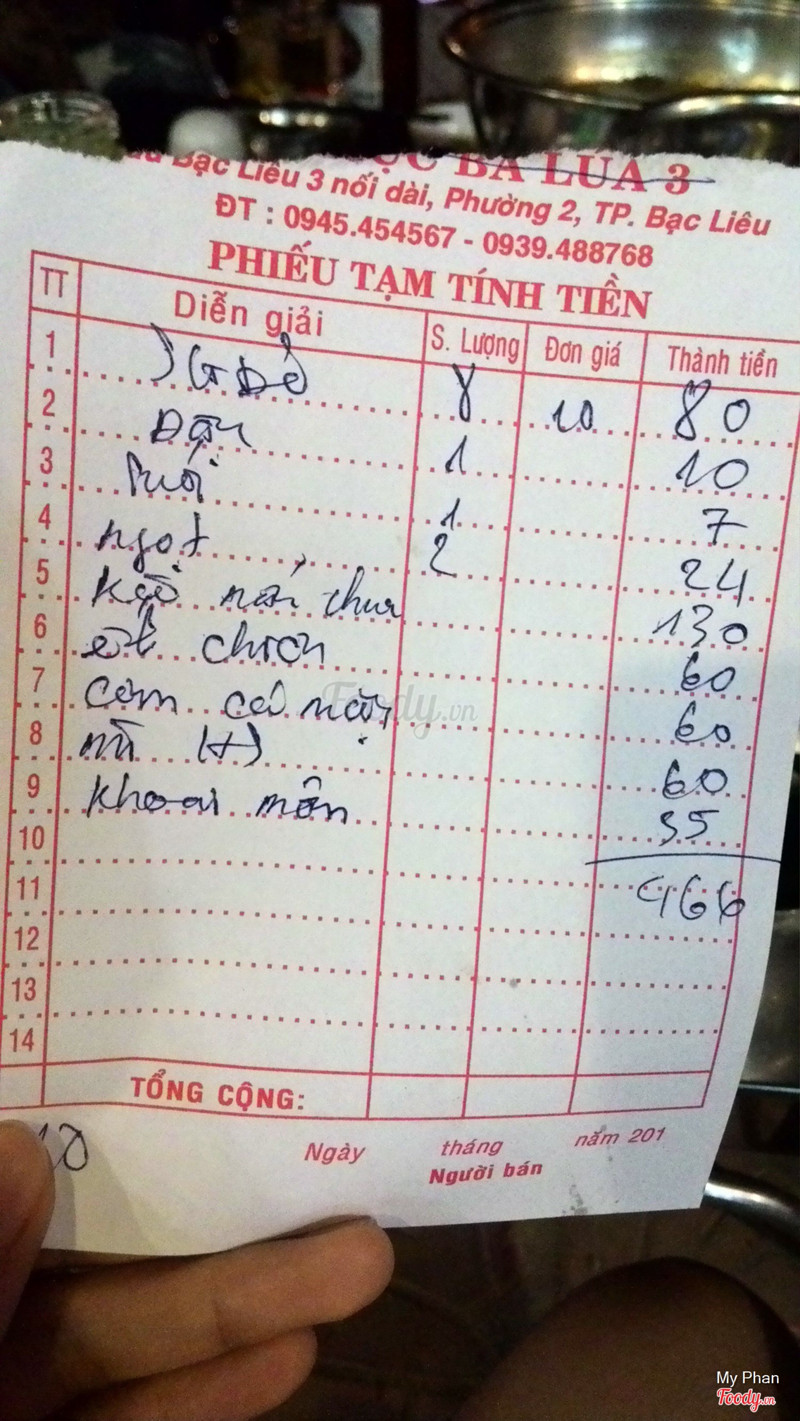 ỤC BA LÚA 3
Bạc Liêu 3 nối dài, Phường 2, TP. Bạc Liêu
ĐT : 0945.454567 - 0939.488768
PHIẾU TẠM TÍNH TIỀN
TT Diễn giải S. Lượng Đơn giá Thành tiền
1 SG Đỏ 8 10 80
2 Đậu 1 10
3 Muối 1 7
4 ngọt 2 24
5 măng chua 130
6 ếch chiên 60
7 cơm cá mặn 60
8 mì (+) 60
9 khoai môn 35
10
11 466
12
13
14
TỔNG CỘNG:
10
Ngày tháng năm 201
Người bán
Foody.vn
My Phan
Foody.vn